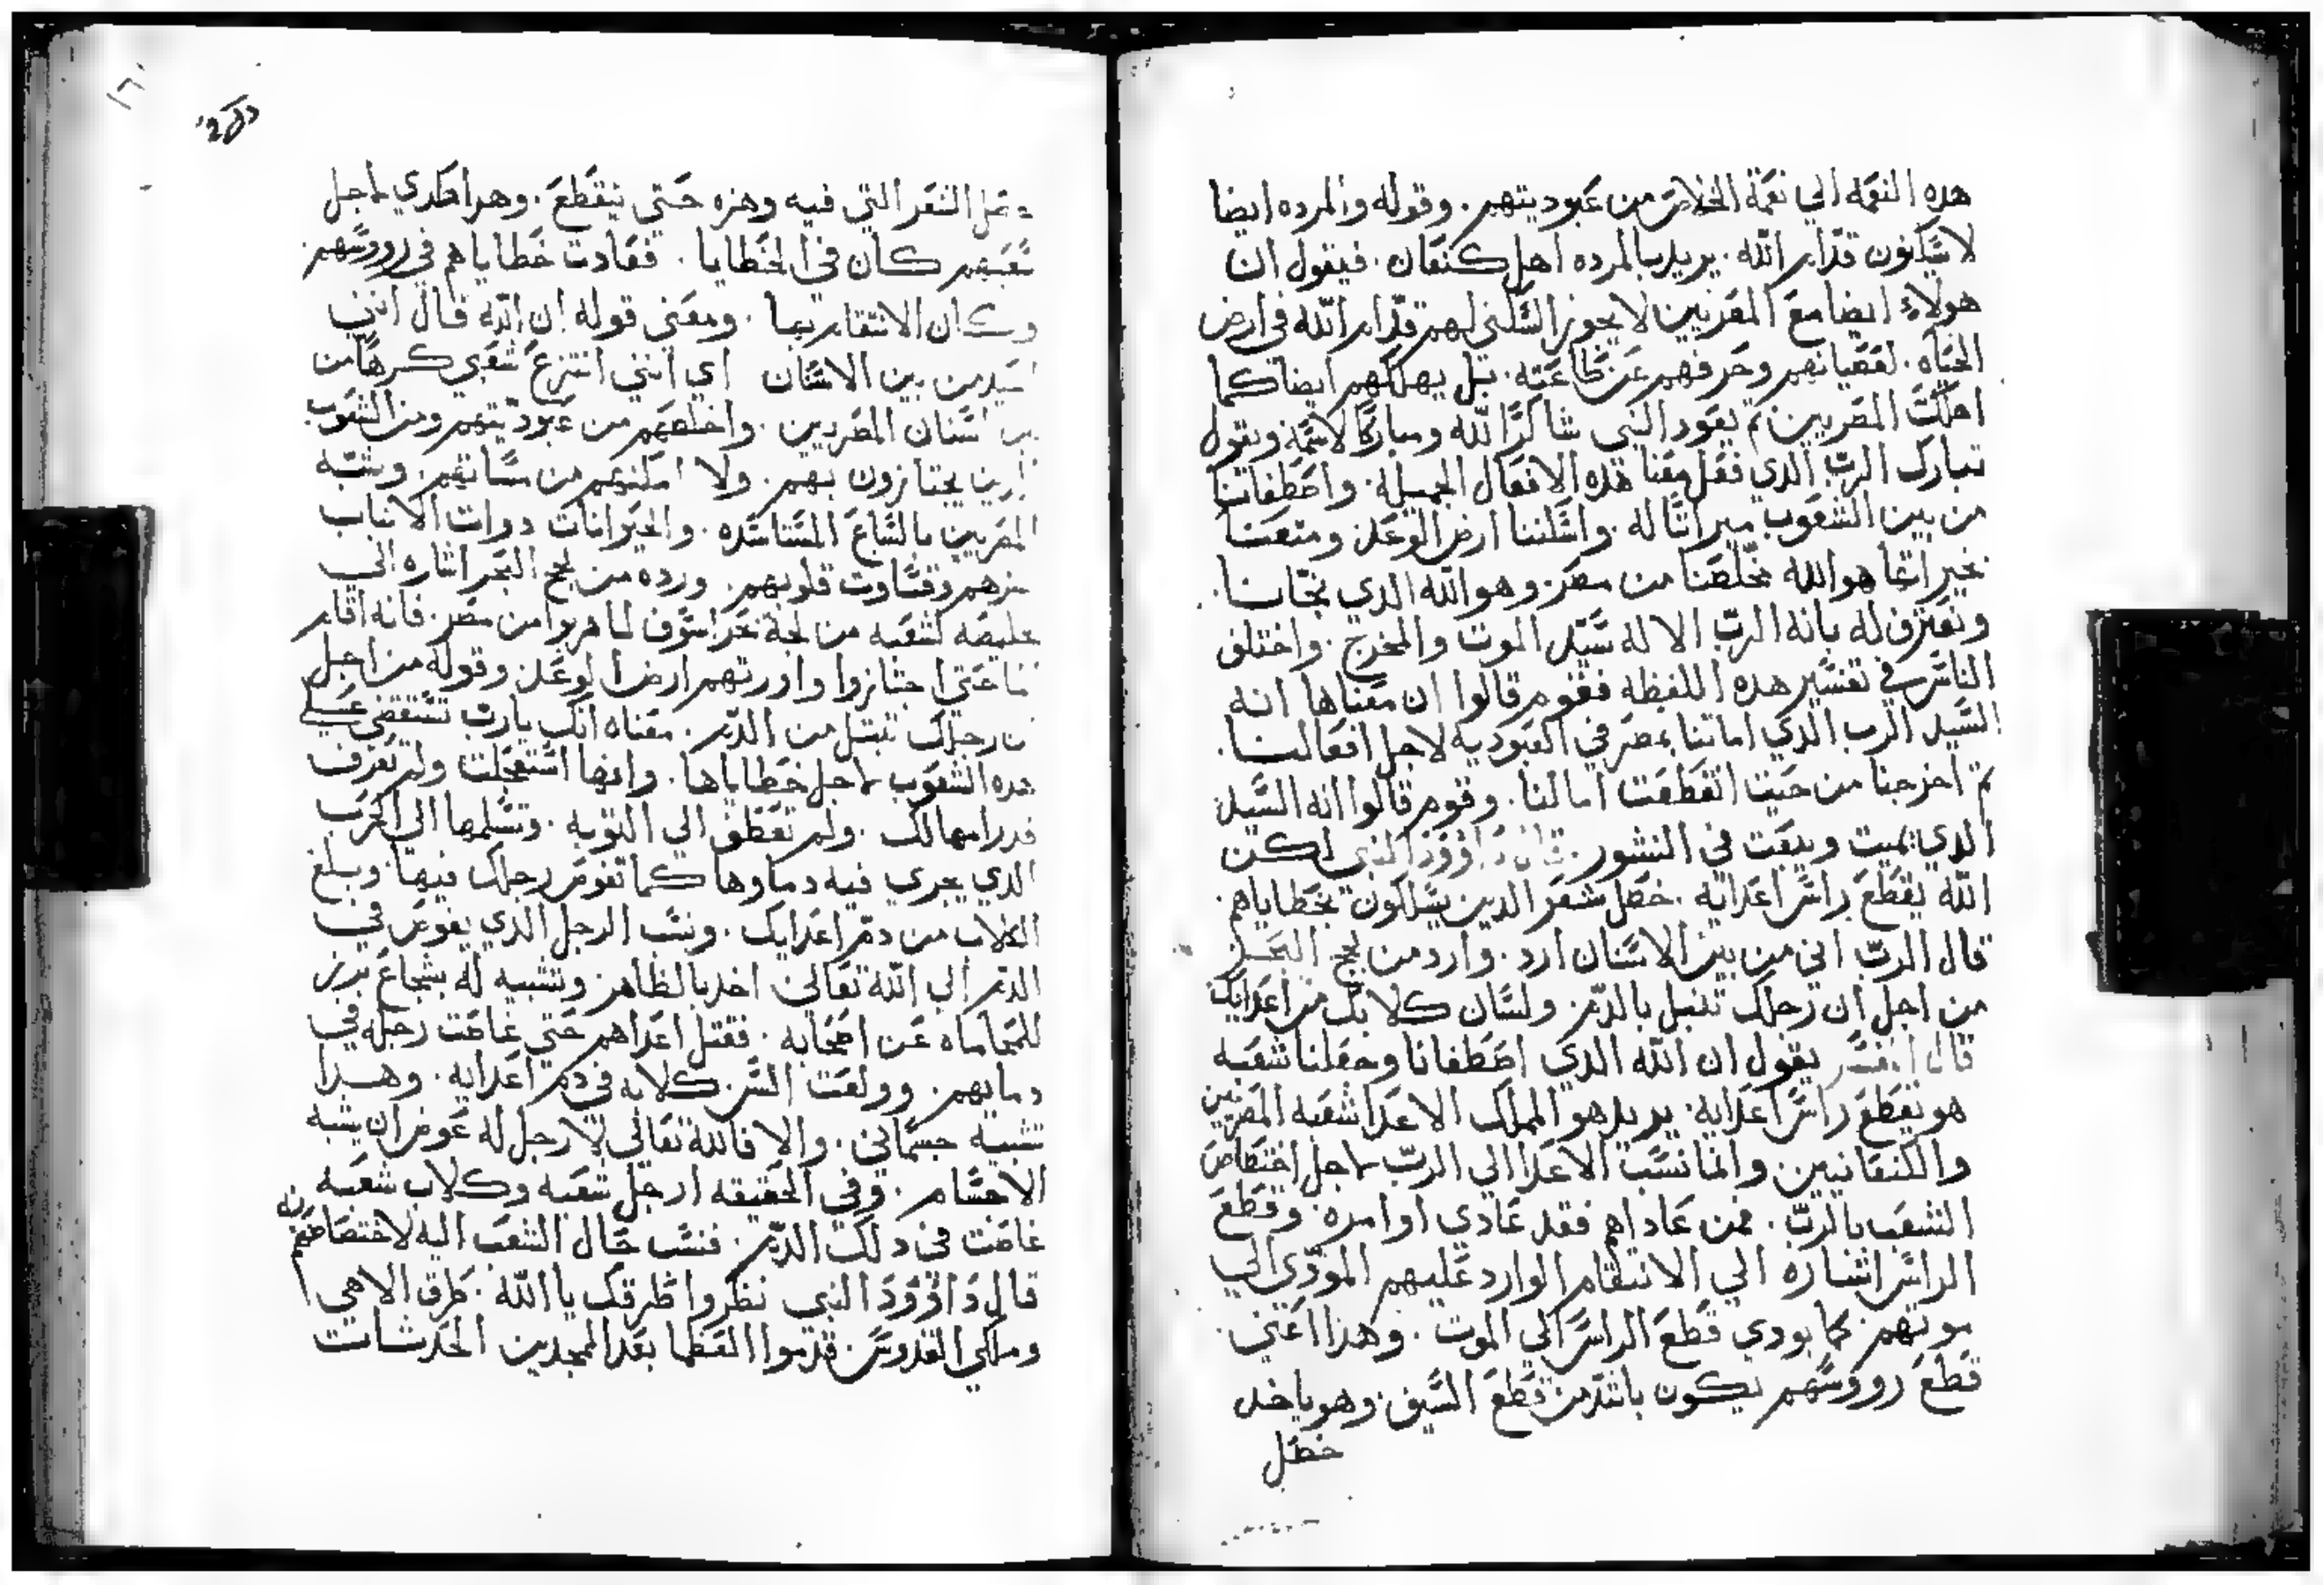 هده النعمه الي نعمة الخلاص من عبوديتهم. وقوله والمرده ايضا
لا يسكنون قدام الله. يريد بالمرده اهل كنعان. فيقول ان
هولاء ايضا مع المصريين لا يجوز السكنى لهم قدام الله في ارض
الحياه. لعصيانهم وحرفهم عن طاعته. بل يهلكهم ايضا كما
اهلك المصريين ثم يعود النبي شاكرًا الله ومباركًا لاسمه ويقول
تبارك الرب الدي فعل معنا هده الافعال الجميله. واصطفانا
من بين الشعوب ميراثًا له. واسكننا ارض الوعد ومتعنا
بخيراتها هو الله مخلصنا من مصر. وهو الله الدي نجانا.
ونعترف له بانه الرب الاله سيد الموت والمخرج. واختلف
الناس في تفسير هده اللفظه فقوم قالوا ان معناها انه
السيد الرب الدي اماتنا بمصر في العبوديه لاجل افعالنا.
ثم اخرجنا من حيت انقطعت امالنا. وقوم قالوا انه السيد
الدي يميت ويبعت في النشور. قال داوود النبي لكن
الله يقطع راس اعدايه. خصل شعر الدين يسلكون بخطاياهم.
قال الرب اني من بين الاسنان ارد. وارد من لجج البحر
من اجل ان رجلك تتبل بالدم. ولسان كلابك من اعدايك
قال المفسر يقول ان الله الدي اصطفانا وجعلنا شعبه
هو يقطع راس اعدايه. يريد هو المهلك الاعدا شعبه المصريين
والكنعانيين وانما نسب الاعدا الي الرب لاجل اختصاص
الشعب بالرب. فمن عاداهم فقد عادي اوامره. وقطع
الراس اشاره الي الانتقام الوارد عليهم المودي الي
موتهم. كما يودي قطع الراس الي الموت. وهذا اعني
قطع رووسهم يكون باشد من قطع السيف. وهو ياخد
خصل
خصل الشعر التي فيه وهزه حتى ينقطع. وهدا لاجل
شعبهم كان في الخطايا. فعادت خطاياهم في رووسهم
وكان الانتقام بها. ومعنى قوله ان الله قال انني
اعيد من بين الاسنان اي انني انتزع شعبي كرهًا من
بين اسنان المصريين. واخلصهم من عبوديتهم ومن الشعوب
الدين يجتازون بهم. ولا امكنهم من مساتهم. وشبه
المصريين بالسباع المستاسده. والحيوانات دوات الانياب
وقساوت قلوبهم. ورده من لجج البحر اشاره الي
تخليصه لشعبه من لجة بحر سوف لما هربوا من مصر. فانه اقام
حتى اجتازوا واورتهم ارض الوعد وقوله من اجل
ان رجلك تتبل من الدم. معناه انك يارب تستقضى علي
هده الشعوب لاجل خطاياها. وانها استعجلت ولم تعرف
قدر امهالك. ولم تعطف الي التوبه. وتسلمها الي الحرب
الدي يجري فيه دماوها كما تغوص رجلك فيها. ويبلغ
الكلاب من دم اعدايك. ونسب الرجل الدي يغوص في
الدم الي الله تعالى اخد بالظاهر وتشبيه له بشجاع برز
للمحاماه عن اصحابه. فقتل اعداهم حتى غاصت رجله في
دمايهم. وولغت السن كلابه في دم اعدايه. وهدا
تشبيه جسماني. والا فالله تعالى لا رجل له عوض ان يشبه
الاجسام. وفي الحقيقه ارجل شعبه وكلاب شعبه
غاصت في دلك الدم. فنسب حال الشعب اليه لاختصاصهم به
قال داوود النبي نظروا طرقك يا الله. طرق الاهي
وملكي القدوس. قدموا العظما بعد الممجدين الحدثات